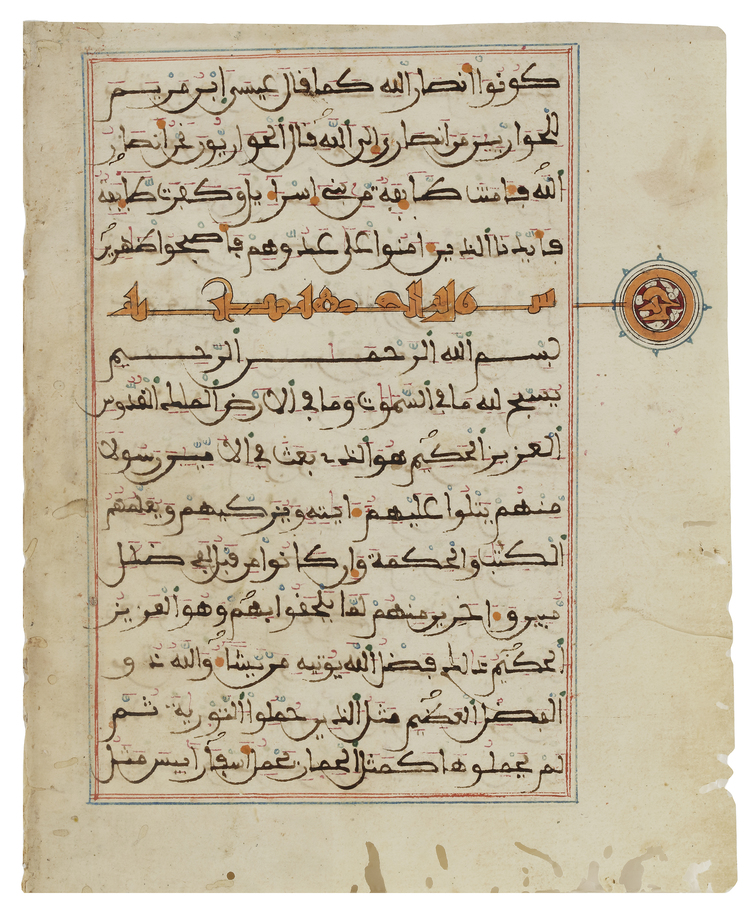 كونوا أنصار الله كما قال عيسى ابن مريم
للحوارين من أنصاري إلى الله قال الحواريون نحن أنصار
الله فامنت طايفة من بني إسرايل وكفرت طايفة
فأيدنا الذين ءامنوا على عدوهم فأصبحوا ظهرين
سورة الجمعة
بسم الله الرحمن الرحيم
يسبح لله ما في السموت وما في الارض الملك القدوس
العزيز الحكيم هو الذي بعث في الامين رسولا
منهم يتلوا عليهم ءايته ويزكيهم ويعلمهم
الكتب والحكمة وإن كانوا من قبل لفي ضلل
مبين وءاخرين منهم لما يلحقوا بهم وهو العزيز
الحكيم ذلك فضل الله يوتيه من يشاء والله ذو
الفضل العظيم مثل الذين حملوا التورية ثم
لم يحملوها كمثل الحمار يحمل أسفارا بيس مثل